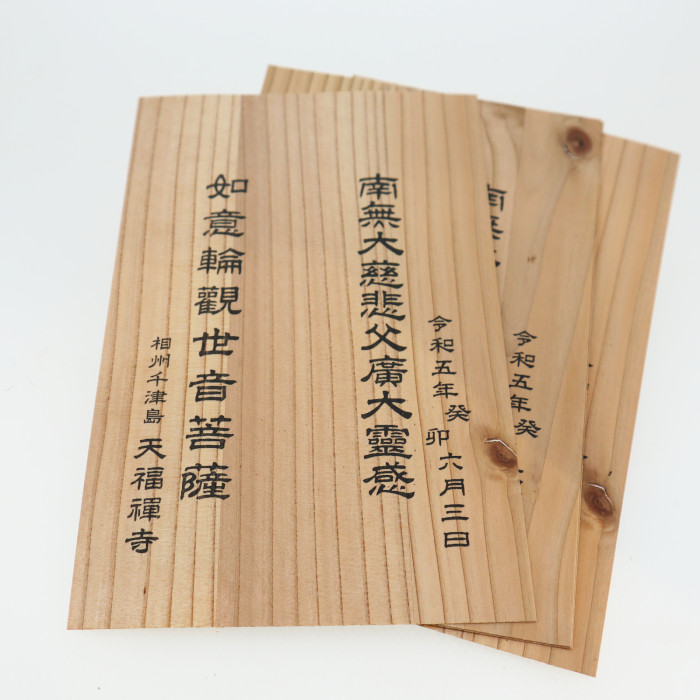 令和五年癸卯六月三日
南無大慈悲父廣大靈感
如意輪觀世音菩薩
相州千津島 天福禅寺
南無大
令和五年癸